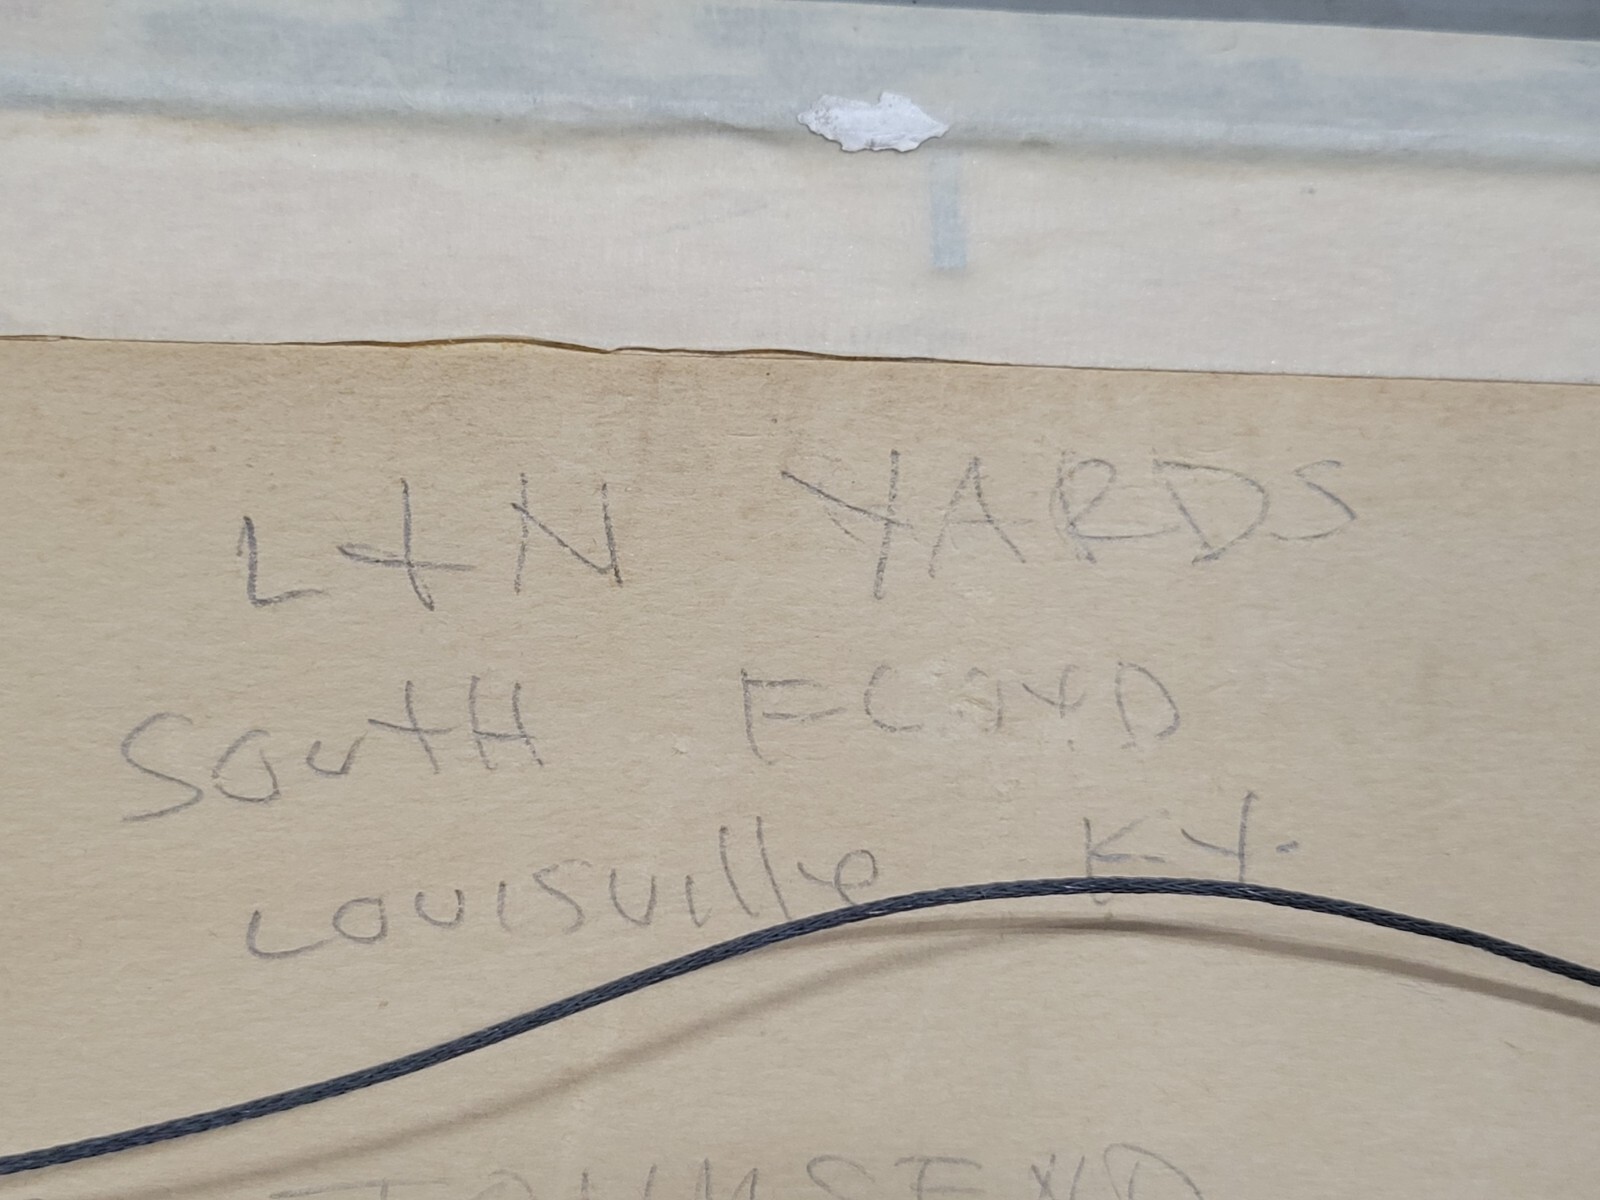 L+N YARDS
SOUTH FLOYD
LOUISVIlle K.Y.
TOWNSEND